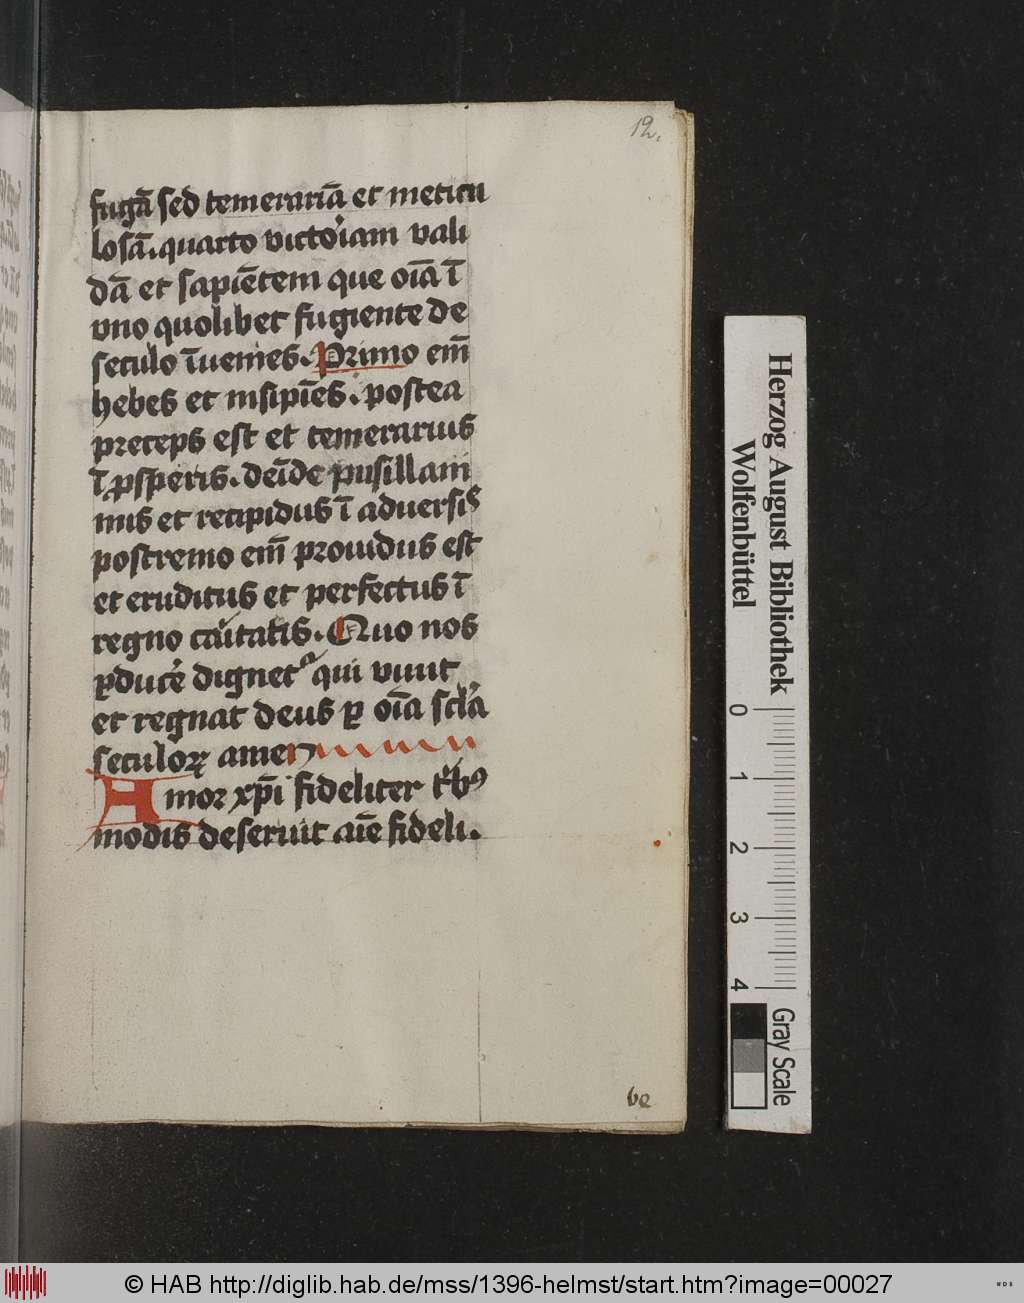 12.
fugā sed temerariā et meticu
losā. quarto victoriam vali
dā et sapiētem que oīa ī
vno quolibet fugiente de
seculo īuenies. Primo em̄
hebes et insipiēs. postea
preceps est et temerarius
ī ꝓsperis. deīde pusillani
mis et trepidus ī aduersis
postremo em̄ prouidus est
et eruditus et perfectus ī
regno caritatis. Quo nos
ꝑducere dignetᷣ qui viuit
et regnat deus ꝑ oīa scl̄a
seculoꝝ amen
Amor xp̄i fideliter tribꝰ
modis deseruit aīe fideli.
be
Herzog August Bibliothek
Wolfenbüttel
0 1 2 3 4
Gray Scale
© HAB http://diglib.hab.de/mss/1396-helmst/start.htm?image=00027
WDB